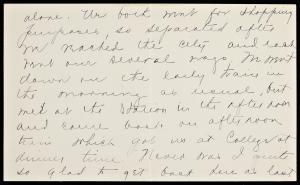 alone. We both went for shopping
purposes, so separated after
we reached the city and each
went our several ways. We went
down on the early train in
the morning as usual, but
met at the station in the afternoon
and came back on afternoon
train which got us at College at
dinner time. Never was I quite
so glad to get back here as last